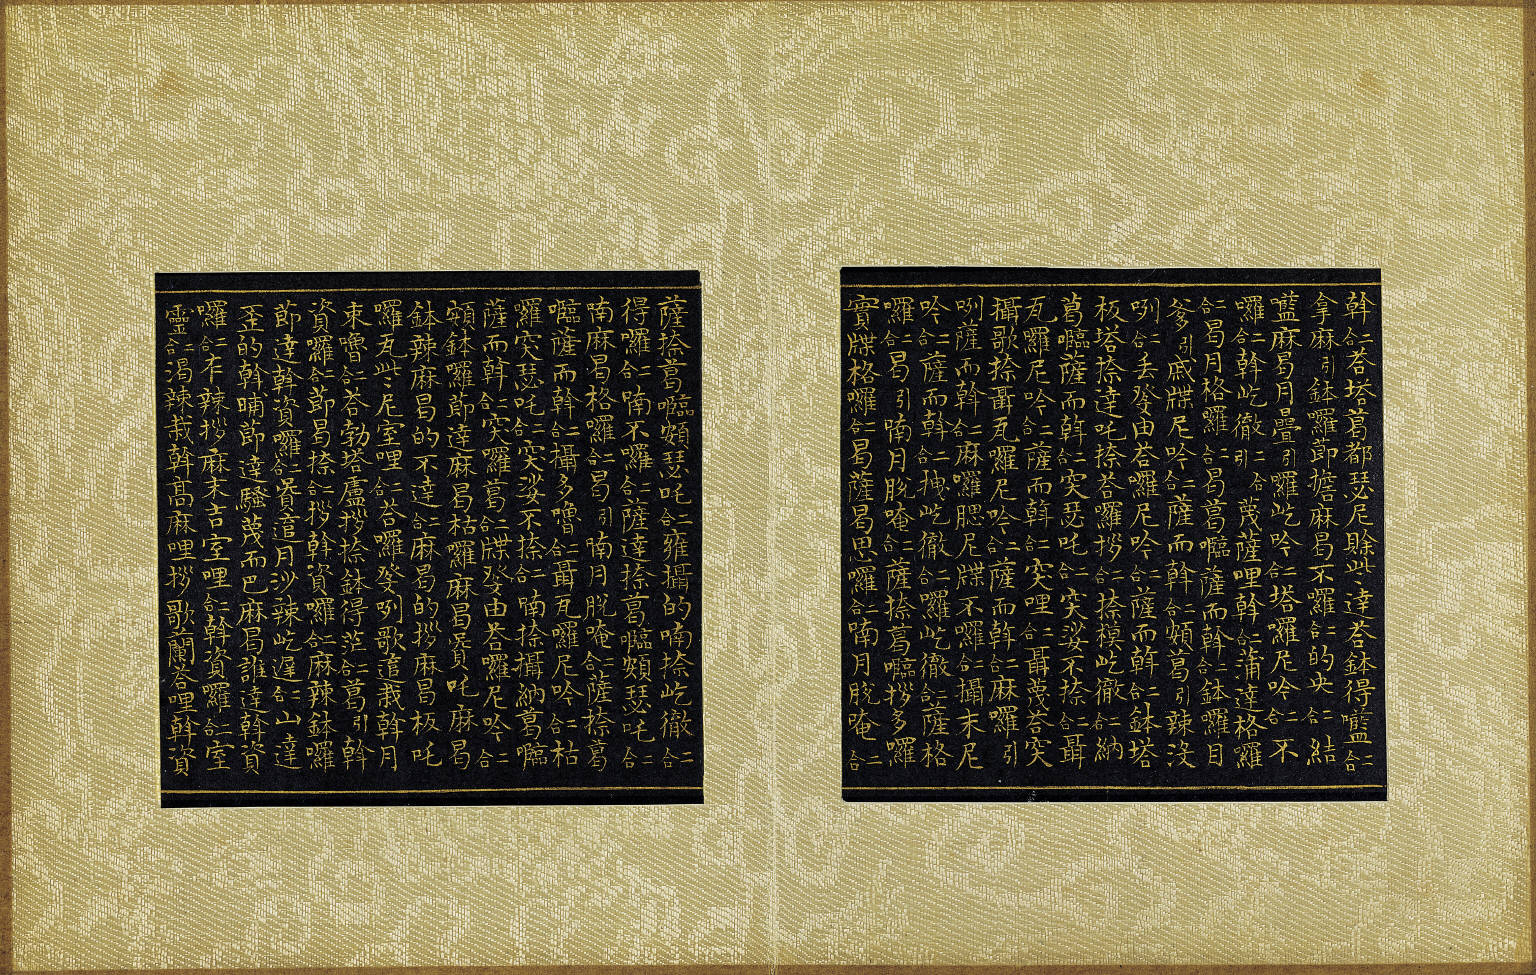 斡二合荅塔葛都瑟尼賒些達荅鉢得囕二合
拿麻引鉢羅節擔麻曷不囉二合的央二合結
囕麻曷月疊引囉屹吟二合塔囉尼吟二合不
囉二合斡屹徹二合引薎薩哩斡二合蒲達格囉
二合曷月格囉二合曷葛囉薩而斡二合鉢囉目
爹引戚牒尼吟二合薩而斡二合頗葛引辣没
咧二合丢癹由荅囉尼吟二合薩而斡二合鉢塔
板塔捺達吒捺荅囉拶二合捺模屹徹二合納
葛𡄔薩而斡二合突瑟吒二合突娑不捺二合聶
瓦囉尼吟二合薩而斡二合突哩二合聶薎荅突
攝歌捺聶瓦囉尼吟二合薩而斡二合麻囉引
咧薩而斡二合麻囉腮尼牒不囉二合攝末尼
吟二合薩而斡二合拽屹徹二合囉屹徹二合薩格
囉二合曷引喃月脫唵二合薩捺葛𡄔拶多囉
實牒格囉二合曷薩曷思囉二合喃月脫唵二合
薩捺葛𡄔頗瑟吒二合雍攝的喃捺屹徹二合
得囉二合喃不囉二合薩達捺葛𡄔頗瑟吒二合
喃麻曷格囉二合曷引喃月脫唵二合薩捺葛
𡄔薩而斡二合攝多嚕二合聶瓦囉尼吟二合枯
囉突瑟吒二合突娑不捺二合喃捺攝納葛𡄔
薩而斡二合突囉葛二合牒癹由荅囉尼吟二合
頗鉢囉節達麻曷枯囉麻曷賫吒麻曷
鉢辣麻曷的不達二合麻曷的拶麻曷板吒
囉瓦些尼室哩二合荅囉癹咧歌遮栽斡月
束嚕二合荅勃塔盧拶捺鉢得茫二合葛引斡
資囉二合節曷捺二合拶斡資囉二合麻辣鉢囉
節達斡資囉二合賫遮月沙辣屹遲二合山達
歪的斡晡節達騷薎而巴麻曷誰達斡資
囉二合乍辣拶麻末吉室哩二合斡資囉二合室
靈二合渴辣栽斡髙麻哩拶歌蘭荅哩斡資